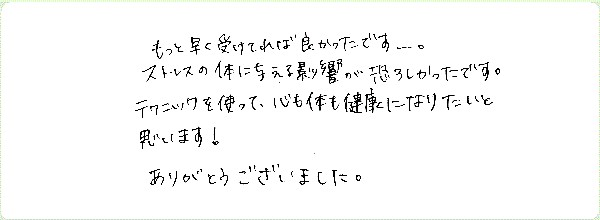 もっと早く受けてれば良かったです…。
ストレスの体に与える影響が恐ろしかったです。
テクニックを使って、心も体も健康になりたいと
思います!
ありがとうございました。